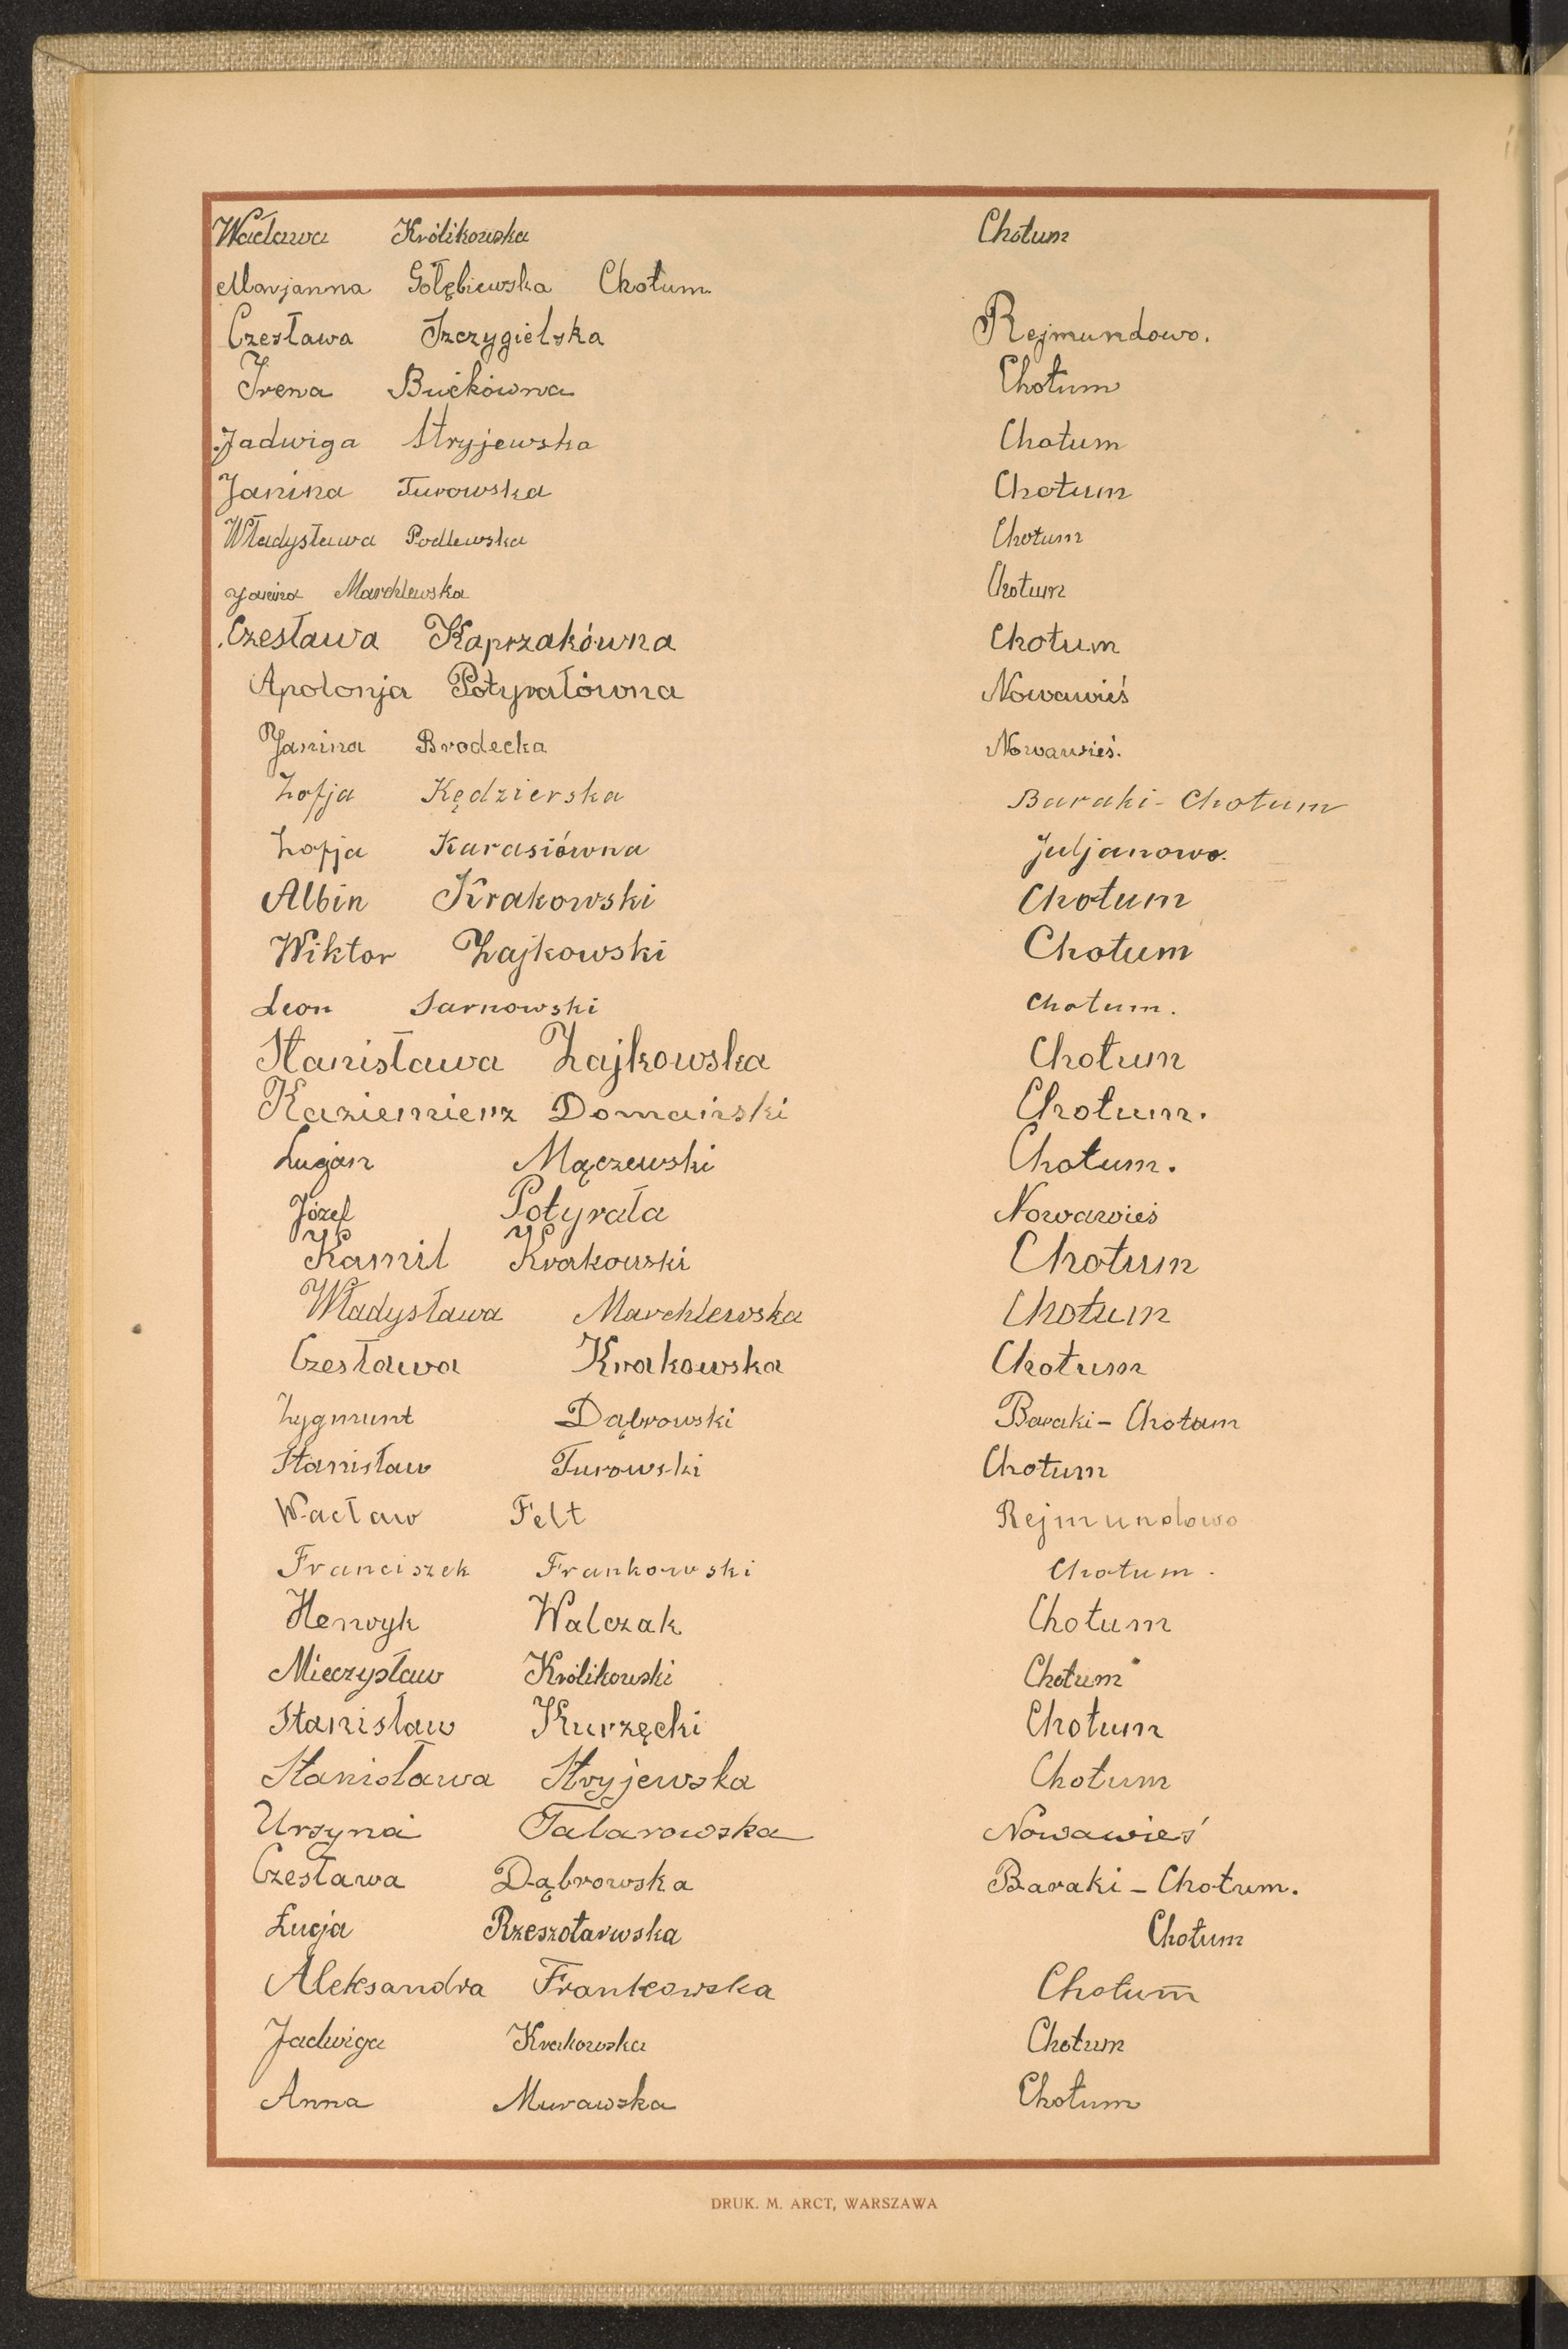 Wacława Królikowska Chotum
Marjanna Gołębiewska Chotum
Czesława Szczygielska Rejmundowo.
Irena Bućkówna Chotum
Jadwiga Stryjewska Chotum
Janina Turowska Chotum
Władysława Podlewska Chotum
Janina Marchlewska Chotum
Czesława Kaprzakówna Chotum
Apolonja Potyrałówna Nowawieś
Janina Brodecka Nowawieś.
Zofja Kędzierska Baraki - Chotum
Zofja Karasiówna Juljanowo.
Albin Krakowski Chotum
Wiktor Zajkowski Chotum
Leon Sarnowski Chotum.
Stanisława Zajkowska Chotum
Kazimierz Domański Chotum.
Lucjan Mączewski Chotum.
Józef Potyrała Nowawieś
Kamil Krakowski Chotum
Władysława Marchlewska Chotum
Czesława Krakowska Chotum
Zygmunt Dąbrowski Baraki - Chotum
Stanisław Turowski Chotum
Wacław Felt Rejmundowo
Franciszek Frankowski Chotum.
Henryk Walczak Chotum
Mieczysław Królikowski Chotum
Stanisław Kurzęcki Chotum
Stanisława Stryjewska Chotum
Ursyna Talarowska Nowawieś
Czesława Dąbrowska Baraki - Chotum.
Łucja Rzeszotarwska Chotum
Aleksandra Frankowska Chotum
Jadwiga Krakowska Chotum
Anna Murawska Chotum
DRUK. M. ARCT, WARSZAWA